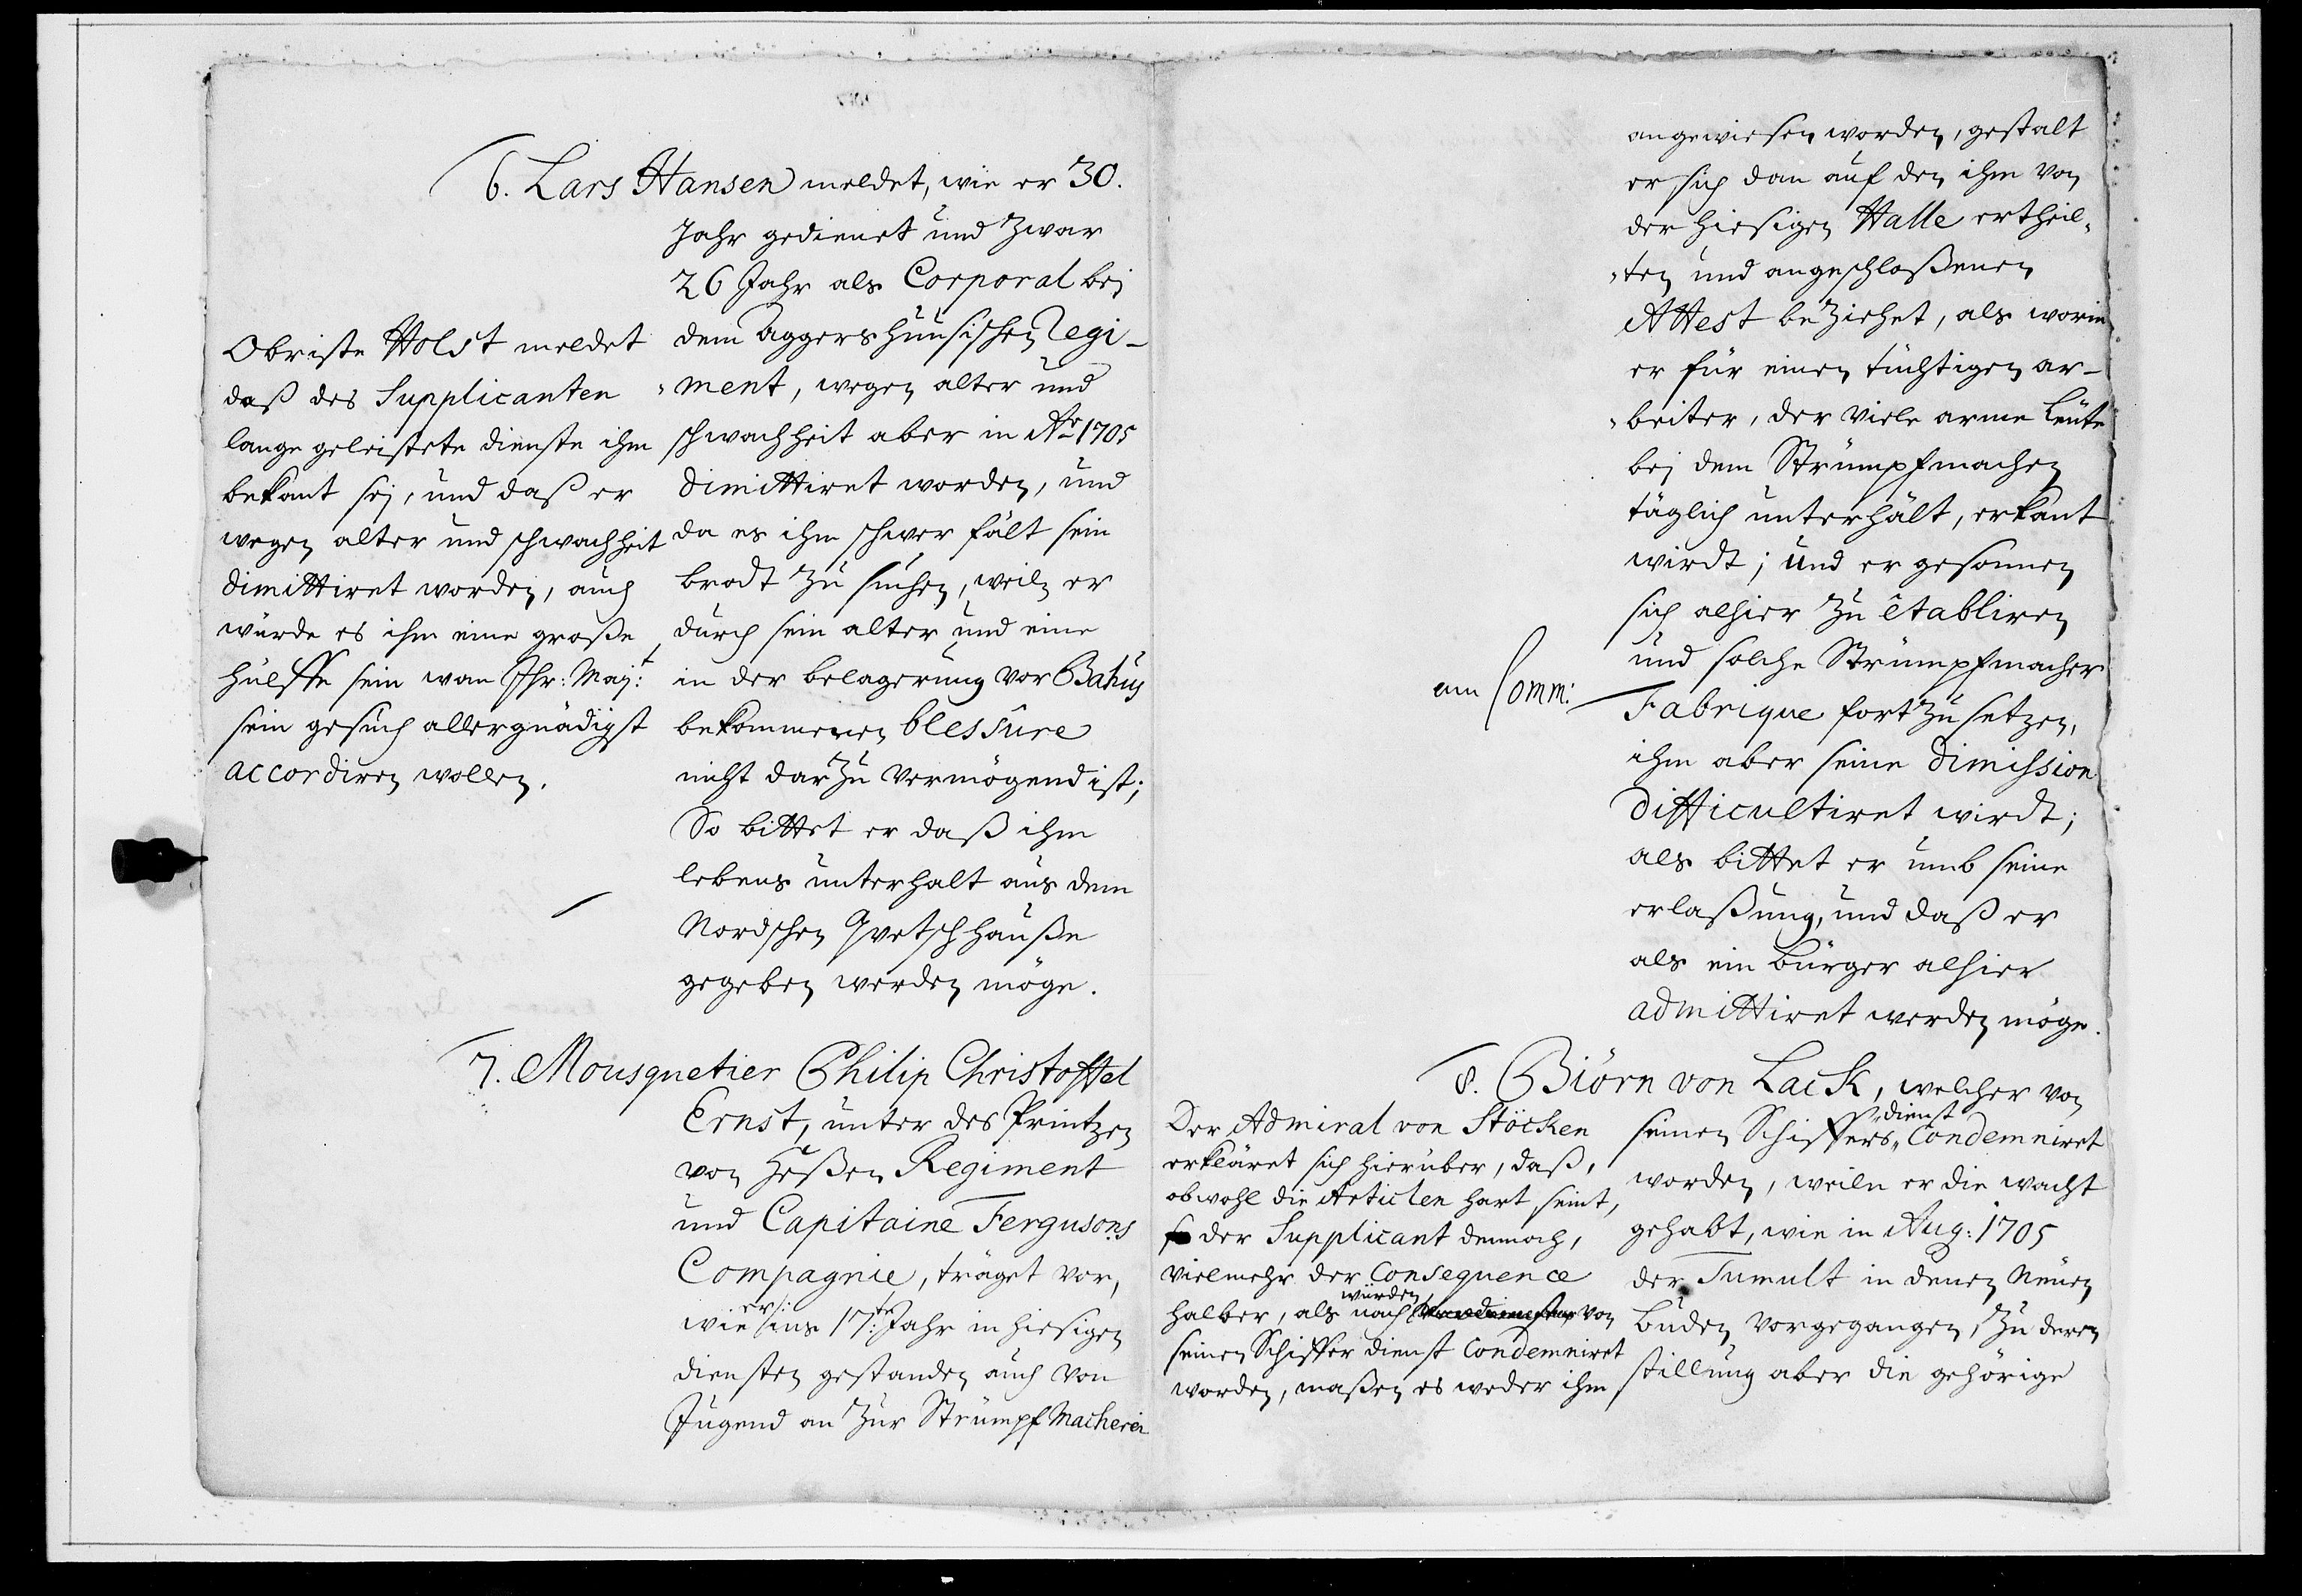 6. Lars Hansen meldet, wie er 30.
Jahr gedienet und zwar
26 Jahr als Corporal bej
dem Aggershuusischen Regi-
ment, wegen alter und
schwachheit aber in Ao 1705
dimittiret worden, und
da es ihm schwer fält sein
brodt zu suchen, weiln er
durch sein alter und eine
in der belagerung vor Bahus
bekommenen blessure
nicht darzu vermögend ist;
So bittet er daß ihm
lebens unterhalt aus dem
Nordschen Qvetschhauße
gegeben werden möge.
Obriste Holst meldet
daß des Supplicanten
lange geleistete dienste ihm
bekant sej, und daß er
wegen alter und schwachheit
dimittiret worden, auch
würde es ihm eine große
hülffe sein wan Ihr: Majt:
sein gesuch allergnädigst
accordiren wollen.
7. Mousquetier Philip Christoffel
Ernst, unter des Printzen
von Heßen Regiment
und Capitaine Fergusons
Compagnie, träget vor,
wie er ins 17te: Jahr in hiesigen
diensten gestanden auch von
Jugend an zur Strümpf Macherei
angewiesen worden, gestalt
er sich dan auf den ihm von
der hiesigen Halle ertheil-
ten und angeschloßenen
Attest beziehet, als worin
er für einen tüchtigen ar-
beiter, der viele arme Leute
bej dem Strümpfmachen
täglich unterhält, erkant
wirdt; und er gesonnen
sich alhier zu établiren
und solche Strümpfmacher
Fabrique fortzusetzen,
ihm aber seine dimission
difficultiret wirdt;
als bittet er umb seine
erlaßung, und daß er
als ein bürger alhier
admittiret werden möge.
am Comm:
8. Biörn von Lack, welcher von
seinen Schiffers dienst Condemniret
worden, weiln er die wacht
gehabt, wie in Aug: 1705
der Tumult in denen Neuen
Buden vorgegangen, zu deren
stillung aber die gehörige
Der Admiral von Stöcken
erkläret sich hierüber, daß,
obwohl die Articlen hart seint,
der Supplicant dennoch,
vielmehr der Consequence
halber, als nach würden von
seinen Schiffer dienst Condemniret
worden, maßen es weder ihm